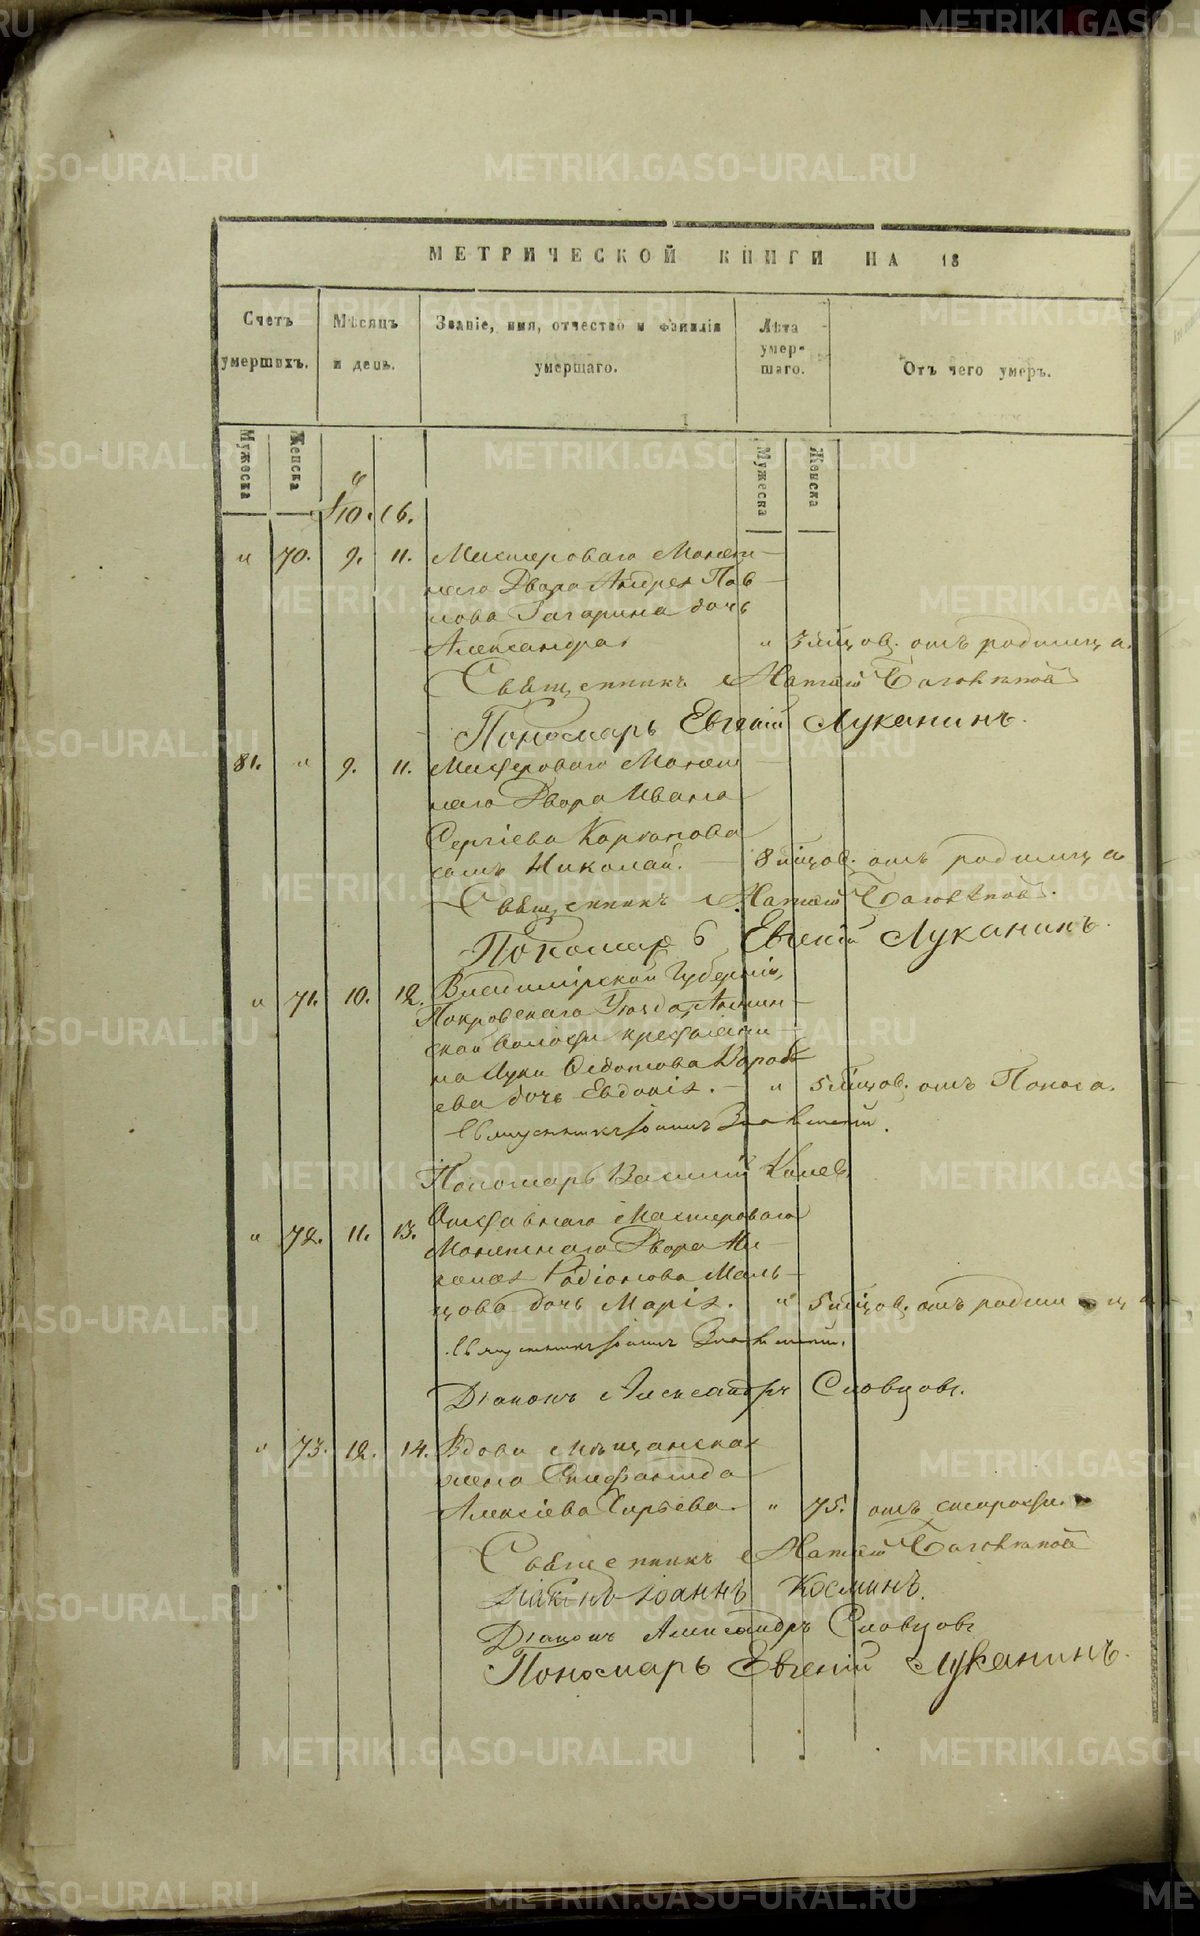 МЕТРИЧЕСКОЙ КНИГИ НА 18
Счетъ умершихъ.
Мѣсяцъ и день.
Званіе, имя, отчество и фамилія умершаго.
Лѣта умер-шаго.
Отъ чего умеръ.
Мужеска
Женска
Мужеска
Женска
" 70. 9. 11. Мастероваго Монет-
наго Двора Андрея Пав-
лова Гагарина дочь
Александра. " 3 мѣсцов. отъ родимца.
Священникъ
Пономарь Евгений Луканинъ.
81. " 9. 11. Мастероваго Монет-
наго Двора Ивана
Сергіева
сынъ Николай. 8 мѣсцов. отъ родимца
Священникъ
Пономарь Евгеній Луканинъ.
" 71. 10. 12. Владимірской Губерніи,
Покровскаго Уѣзда,
ской волости крестьяни-
на Луки Ѳедотова
ева дочь Евдокія. " 5 мѣсцов. отъ Поноса.
Священникъ Іоаннъ
Пономарь Василій
" 72. 11. 13. Отставнаго Мастероваго
Монетнаго Двора Ми-
Родіонова Маль-
цова дочь Марія. " 5 мѣсцов. отъ родимца
Священникъ Іоаннъ
Діаконъ Александръ Словцовъ.
" 73. 12. 14. Вдова мѣщанская
жена Епифанида
Алексіева " 75. отъ старости.
Священникъ
Діаконъ Іоаннъ Косминъ.
Діаконъ Александръ Словцовъ
Пономарь Евгеній Луканинъ.
METRIKI.GASO-URAL.RU